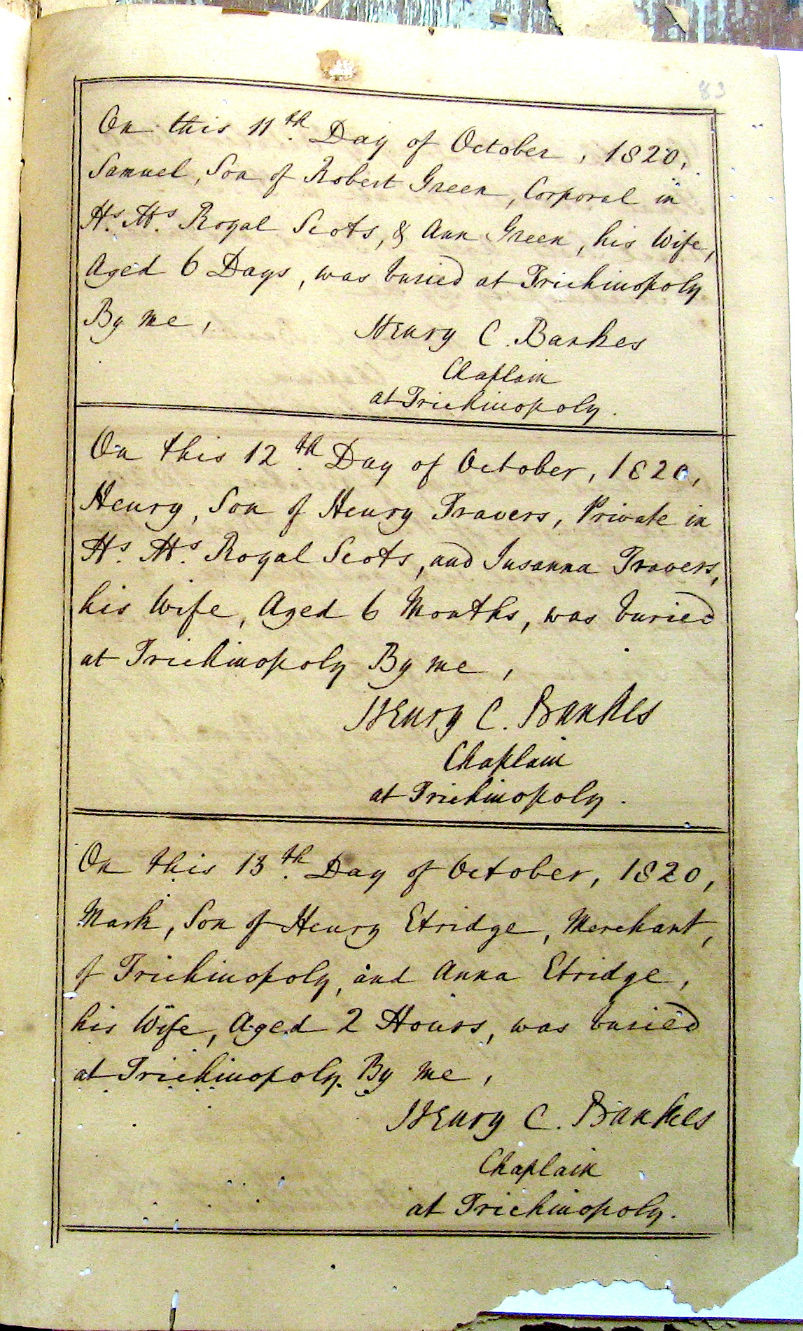 83
On this 11th Day of October, 1820,
Samuel, Son of Robert Green, Corporal in
Hs. Ms. Royal Scots, & Ann Green, his Wife,
Aged 6 Days, was buried at Trichinopoly
By me,
Henry C. Bankes
Chaplain
at Trichinopoly.
On this 12th Day of October, 1820,
Henry, Son of Henry Travers, Private in
Hs. Ms. Royal Scots, and Susanna Travers,
his Wife, Aged 6 Months, was buried
at Trichinopoly By me,
Henry C. Bankes
Chaplain
at Trichinopoly.
On this 13th Day of October, 1820,
Mark, Son of Henry Etridge, Merchant,
of Trichinopoly, and Anna Etridge,
his Wife, Aged 2 Hours, was buried
at Trichinopoly. By me,
Henry C. Bankes
Chaplain
at Trichinopoly.